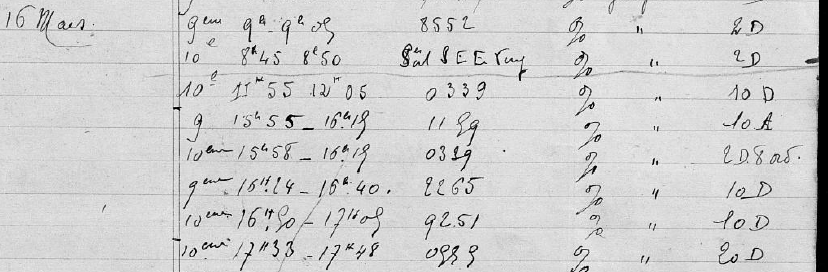 16 Mars. 9eme 9h - 9h05 8552 % " 2D
10e 8h45 8h50 % " 2D
10e 11H55 12H05 0339 % " 10D
9 15h55 - 16h15 1159 % " 10A
10eme 15h58 - 16h15 0339 % "
9eme 16H24 - 16h40. 2265 % " 10D
10eme 16H50 - 17H05 9251 % " 10D
10eme 17H33 - 17H48 % " 20D